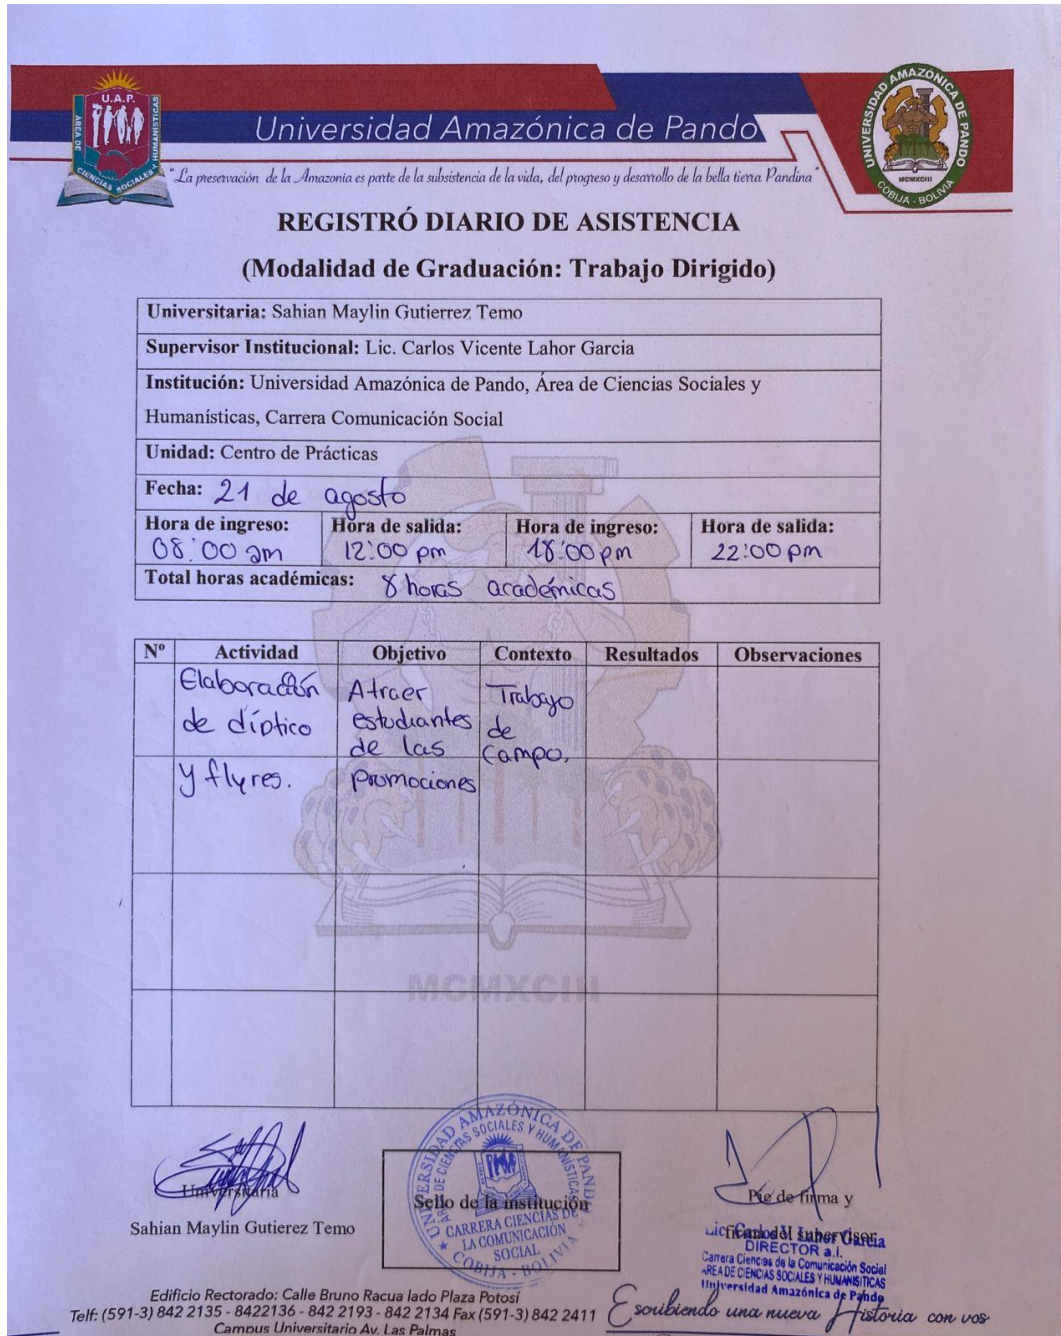 U.A.P.
AREA DE CIENCIAS SOCIALES Y HUMANISTICAS
Universidad Amazónica de Pando
UNIVERSIDAD AMAZÓNICA DE PANDO
MCMXCIII
COBIJA - BOLIVIA
"La preservación de la Amazonia es parte de la subsistencia de la vida, del progreso y desarrollo de la bella tierra Pandina"
REGISTRÓ DIARIO DE ASISTENCIA
(Modalidad de Graduación: Trabajo Dirigido)
Universitaria: Sahian Maylin Gutierrez Temo
Supervisor Institucional: Lic. Carlos Vicente Lahor Garcia
Institución: Universidad Amazónica de Pando, Área de Ciencias Sociales y
Humanísticas, Carrera Comunicación Social
Unidad: Centro de Prácticas
Fecha: 21 de agosto
Hora de ingreso: Hora de salida: Hora de ingreso: Hora de salida:
08:00 am 12:00 pm 18:00 pm 22:00 pm
Total horas académicas: 8 horas académicas
Nº Actividad Objetivo Contexto Resultados Observaciones
Elaboración Atraer Trabajo
de díptico estudiantes de
de las campo.
y flyres. promociones
MCMXCIII
Universitaria
Sahian Maylin Gutierez Temo
UNIVERSIDAD AMAZÓNICA DE PANDO
ÁREA DE CIENCIAS SOCIALES Y HUMANISTICAS
Sello de la institución
CARRERA CIENCIAS DE
LA COMUNICACIÓN
SOCIAL
COBIJA - BOLIVIA
Pie de firma y
firma del Supervisor
Garcia
DIRECTOR a.i.
Carrera Ciencias de la Comunicación Social
AREA DE CIENCIAS SOCIALES Y HUMANISITICAS
Universidad Amazónica de Pando
Edificio Rectorado: Calle Bruno Racua lado Plaza Potosí
Telf: (591-3) 842 2135 - 8422136 - 842 2193 - 842 2134 Fax (591-3) 842 2411
Campus Universitario Av. Las Palmas
Escribiendo una nueva Historia con vos